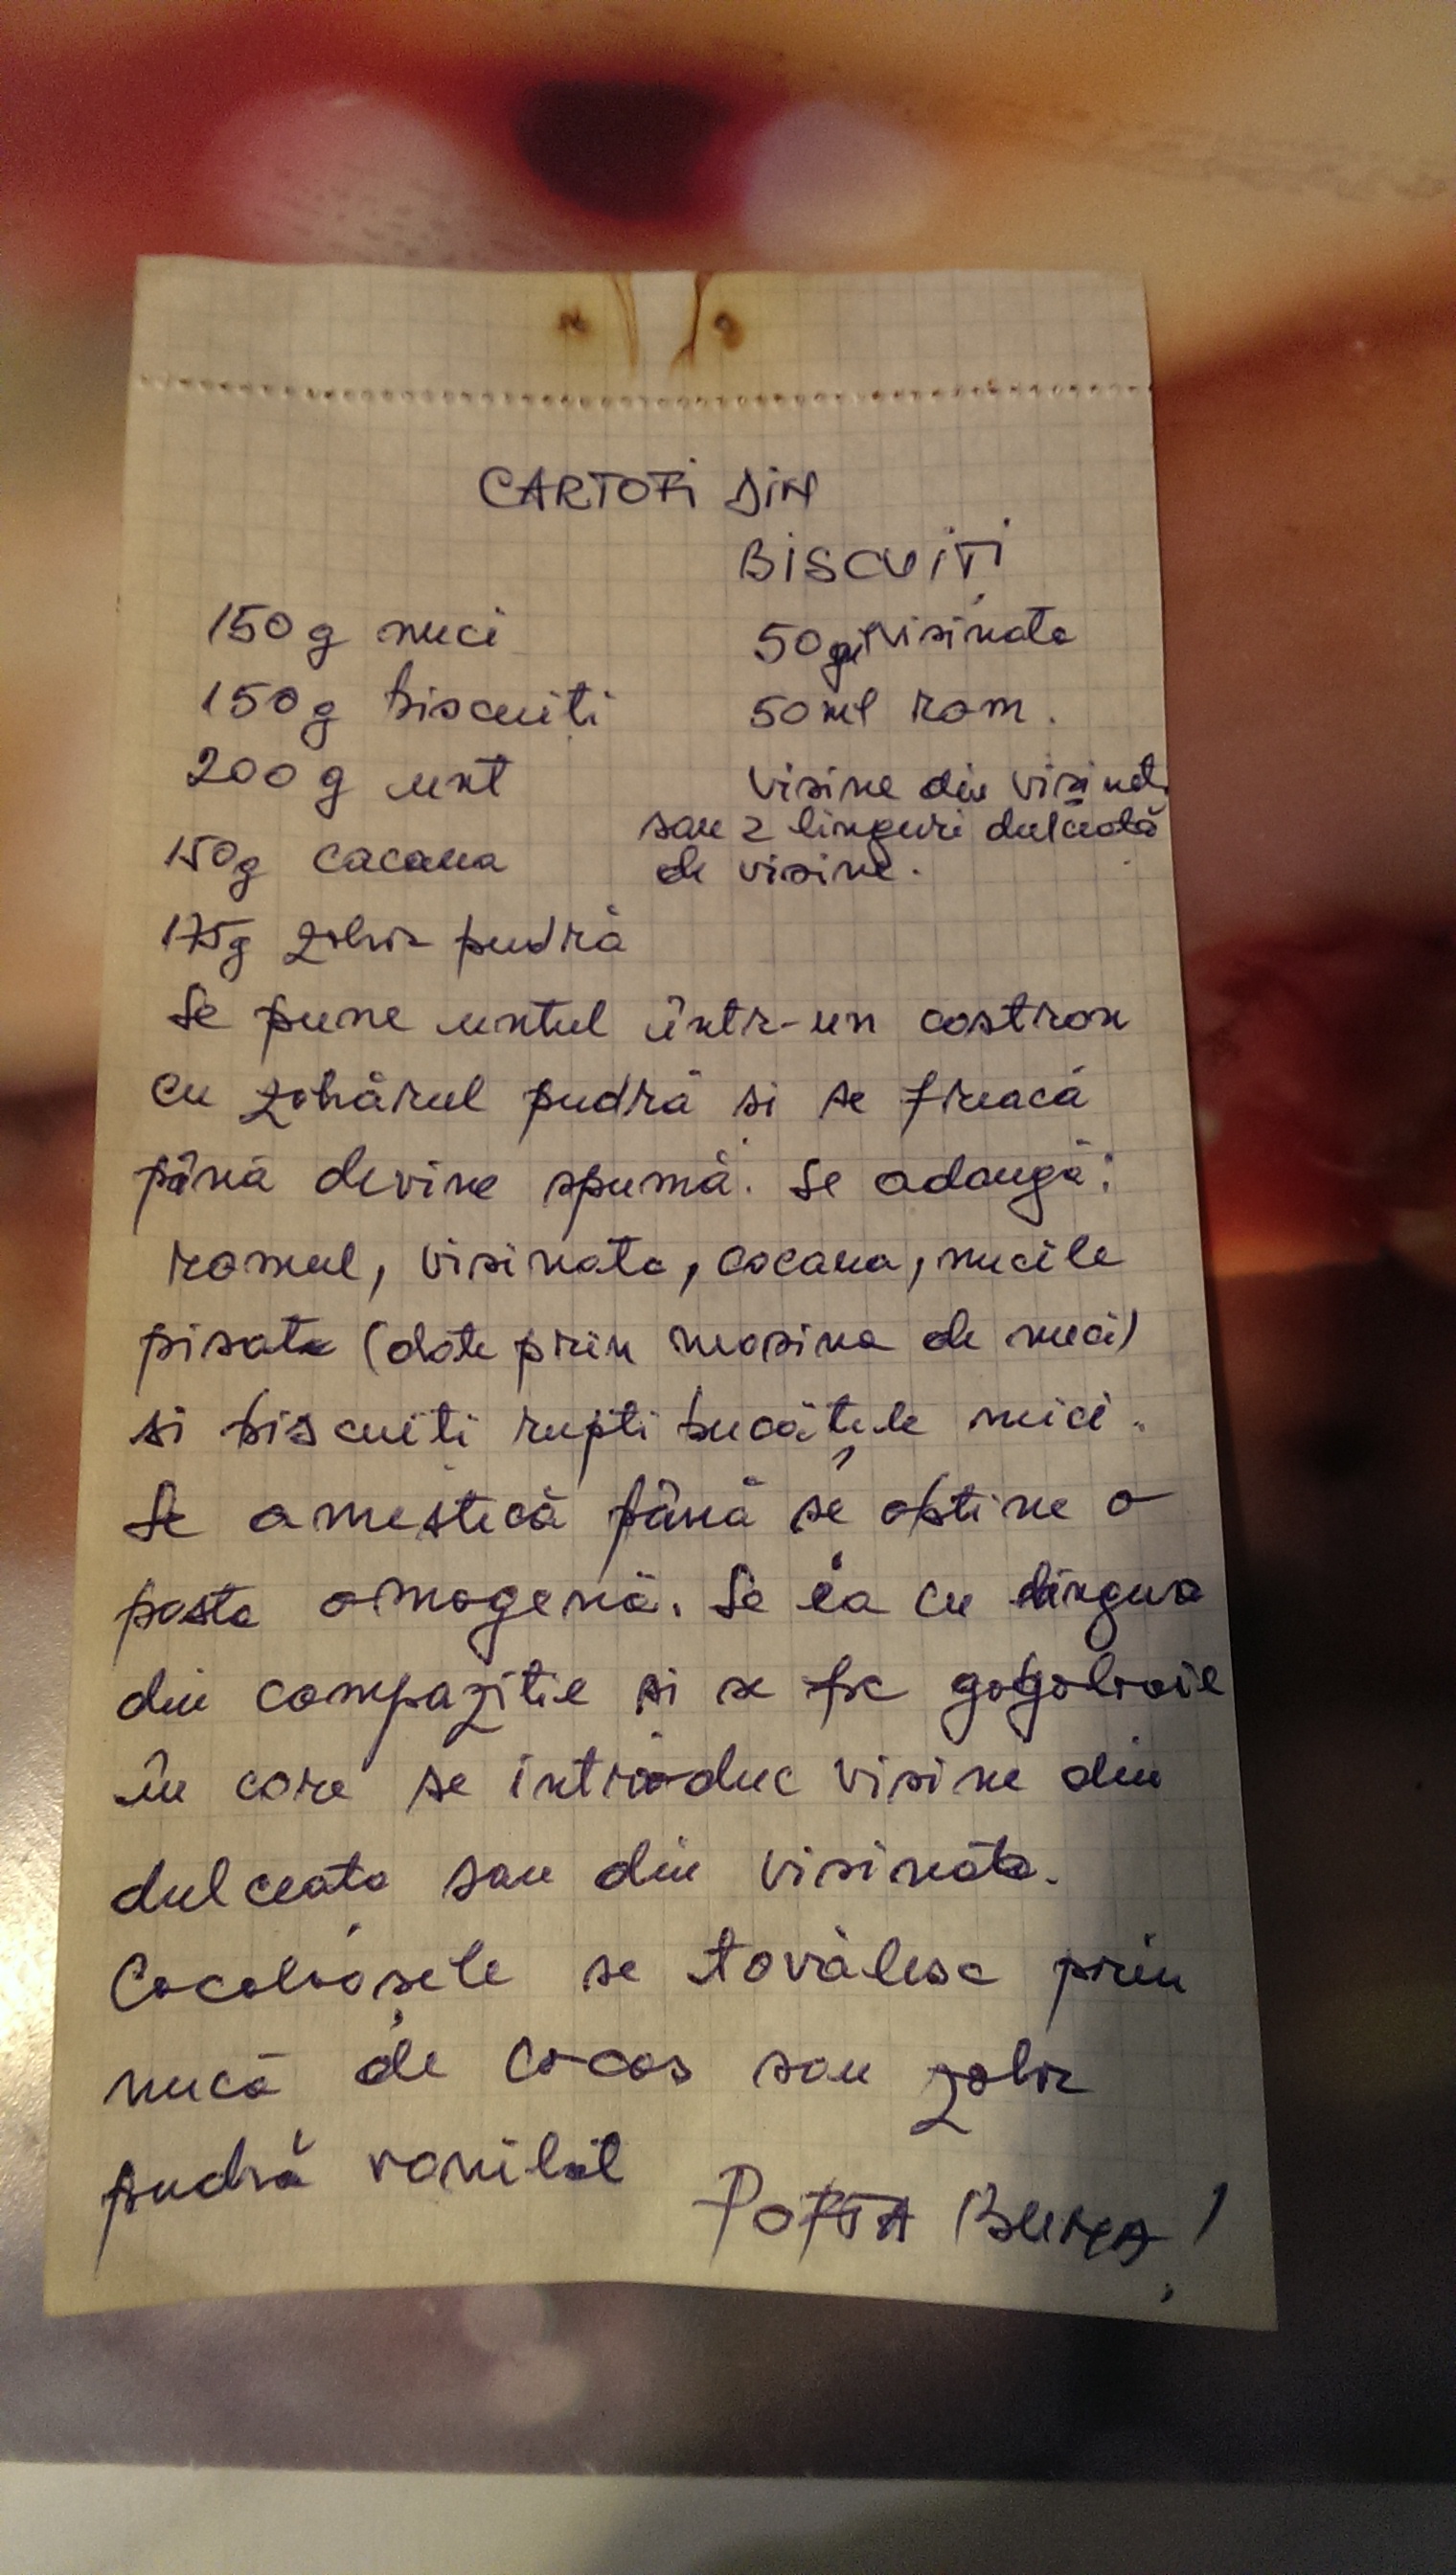 CARTOFI DIN
BISCUIȚI
150 g nuci
150 g biscuiți
200 g unt
150g cacaua
175g zahăr pudră
50 ml vișinata
50 ml rom.
Visine din visinată
sau 2 linguri dulceată
de visine.
Se pune untul într-un castron
cu zahărul pudră si se freacă
până devine spumă. Se adaugă:
romul, visinata, cacaua, nucile
pisate (date prin masina de nuci)
si biscuiti rupti bucățele mici.
Se amestecă până se obtine o
pasta omogenă. Se ia cu lingura
din compozitie si se fac gogoloaie
în care se introduc visine din
dulceata sau din visinata.
Cocoloașele se tovălesc prin
nucă de cocos sau zahar
pudră vanilat
POFTA BUNA!